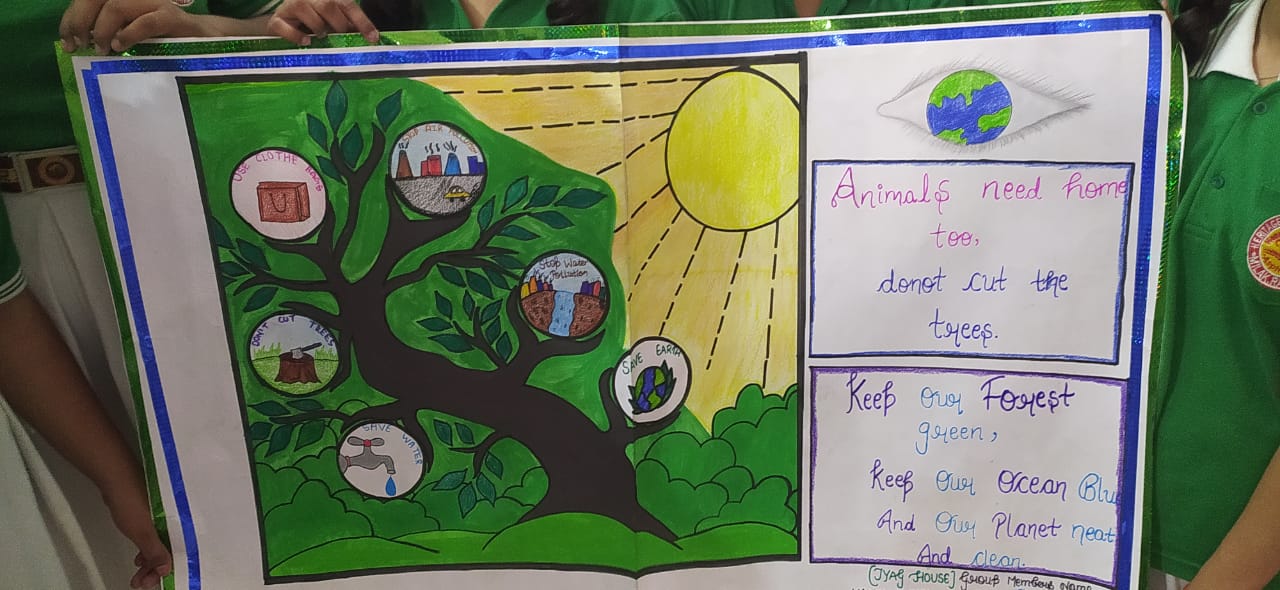 USE CLOTHE BAGS
STOP AIR POLLUTION
Stop Water
Pollution
DON'T CUT TREES
SAVE EARTH
SAVE WATER
Animals need home
too,
donot cut the
trees.
Keep our Forest
green,
Keep our Ocean Blu
And Our Planet neat
And clean.
[TYAG HOUSE] Group Members Name
HERITAGE